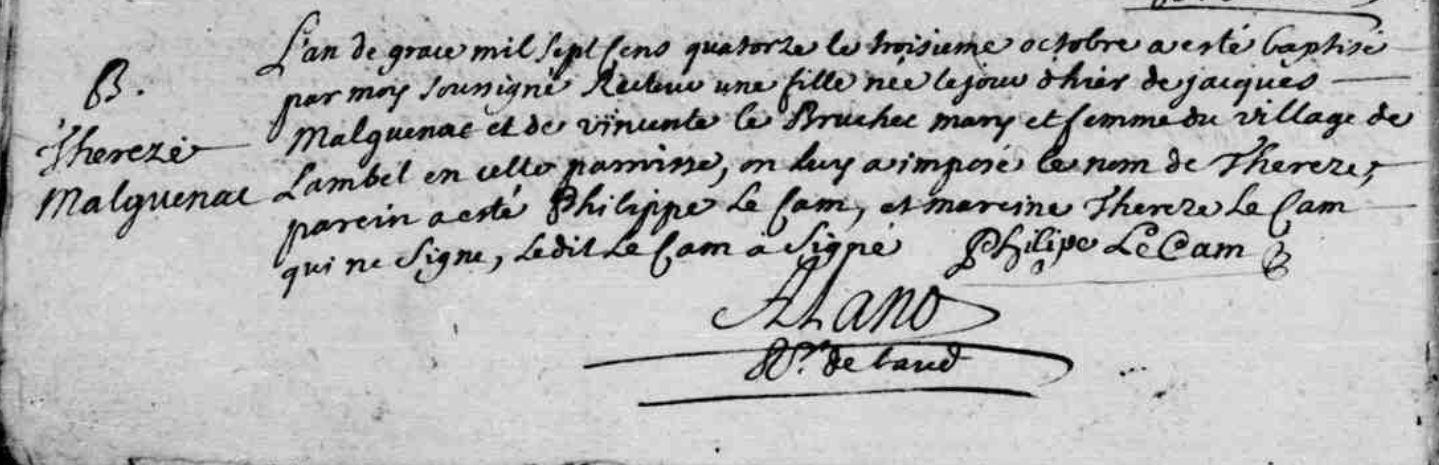 B.
Thereze
Malguenac
L'an de grace mil sept cens quatorze le troisieme octobre a esté baptisé
par moy soussigné Recteur une fille née le jour d'hier de jacques
Malguenac et de vincente le Bruchec mary et femme du village de
Lambel en cette parroisse, on luy a imposé le nom de Thereze,
parein a esté Philippe Le Cam, et mareine Thereze Le Cam
qui ne signe, ledit Le Cam a signé Philipe Le Cam
de baud